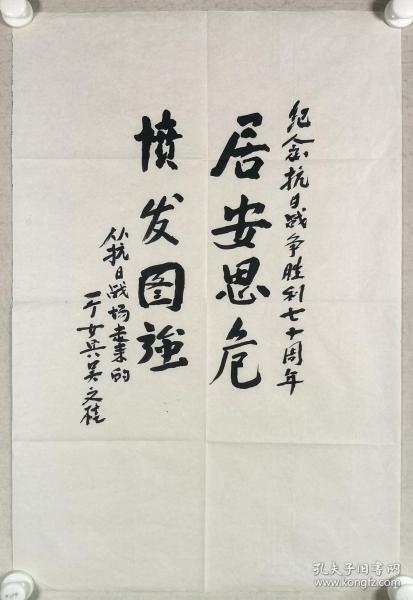 纪念抗日战争胜利七十周年
居安思危
愤发图强
从抗日战场走来的
一个女兵吴之桂
孔夫子旧书网
www.kongfz.com